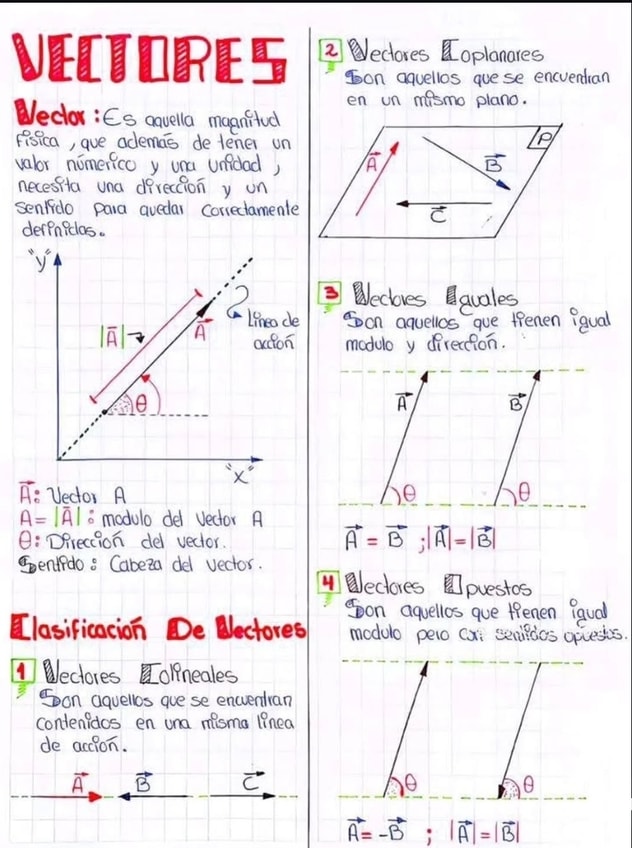 VECTORES
Vector: Es aquella magnitud
física, que además de tener un
valor númerico y una unidad,
necesita una dirección y un
sentido para quedar correctamente
definidos.
"y"
|A⃗|
A⃗
Línea de
acción
θ
"x"
A⃗: Vector A
A = |A⃗|: modulo del vector A
θ: Dirección del vector.
Sentido: Cabeza del vector.
Clasificación De Vectores
1 Vectores Colineales
Son aquellos que se encuentran
contenidos en una misma línea
de acción.
A⃗ B⃗ C⃗
2 Vectores Coplanares
Son aquellos que se encuentran
en un mismo plano.
P
A⃗ B⃗
C⃗
3 Vectores Iguales
Son aquellos que tienen igual
modulo y dirección.
A⃗ B⃗
θ θ
A⃗ = B⃗ ; |A⃗| = |B⃗|
4 Vectores Opuestos
Son aquellos que tienen igual
modulo pero con sentidos opuestos.
θ θ
A⃗ = -B⃗ ; |A⃗| = |B⃗|